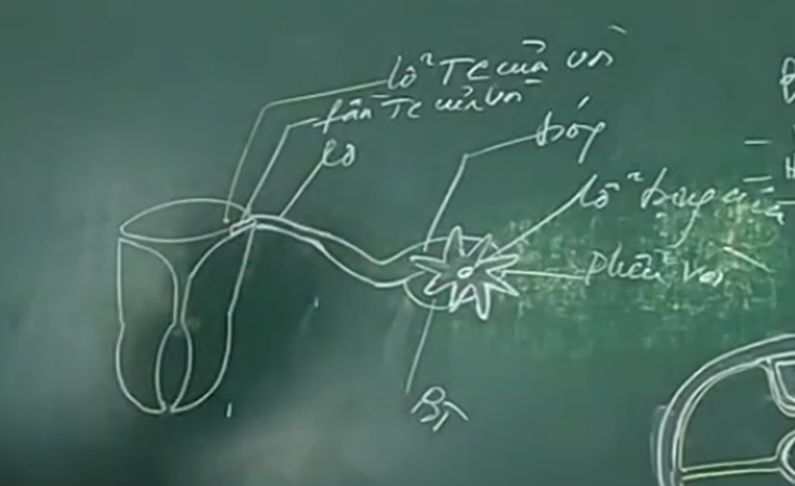 lỗ TC của vòi
fần TC của vòi
eo
bóng
lỗ bụng của
phễu vòi
BT